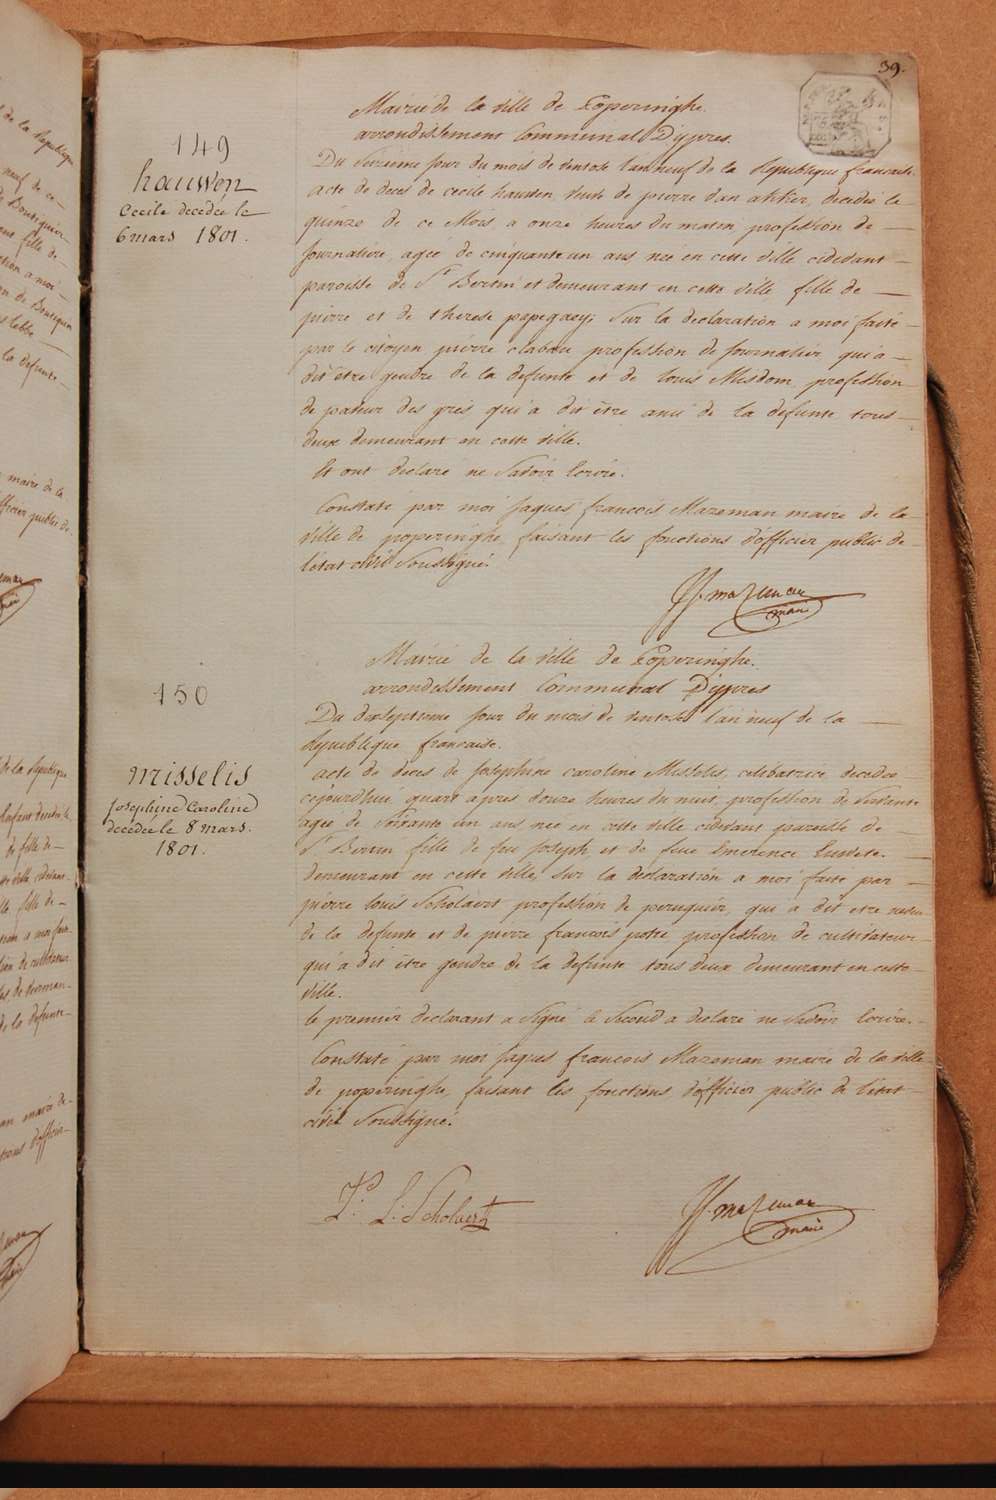 39.
149
hauwen
Cecile decedée le
6 mars 1801.
Mairie de la ville de Poperinghe.
arrondissement Communal D'ypres.
Du Seizieme jour du mois de ventose l'an neuf de la Republique francaise.
acte de deces de cecile hauwen, veuve de pierre van akker, decedée le
quinze de ce Mois, a onze heures du matin, profession de
journaliere, agée de cinquante un ans née en cette ville cidevant
paroisse de St Bertin et demeurant en cette ville fille de
pierre et de therese papegaey; Sur la declaration a moi faite
par le citoyen pierre clabau profession de journalier, qui a
dit être gendre de la defunte et de louis Misdom, profession
de paveur des grès qui a dit être ami de la defunte tous
deux demeurant en cette ville.
Et ont declaré ne Savoir Ecrire.
Constaté par moi jaques francois Mazeman maire de la
ville de poperinghe, faisant les fonctions d'officier public de
l'état civil Soussigné.
J.f. mazeman
maire
150
misselis
Josephine Caroline
decedée le 8 mars.
1801.
Mairie de la ville de Poperinghe.
arrondissement Communal D'ypres
Du dixseptieme jour du mois de ventose l'an neuf de la
Republique francaise.
acte de deces de Josephine caroline Misselis, celibatrice, decedée
cejourdhui quart apres douze heures du nuit, profession de Servente
agée de Soixante un ans née en cette ville cidevant paroisse de
St Bertin fille de feu Joseph, et de feue Emerence
demeurant en cette ville, Sur la declaration a moi faite par
pierre louis Scholaert profession de peruquier, qui a dit etre
de la defunte et de pierre francois potre profession de cultivateur
qui a dit être gendre de la defunte tous deux demeurant en cette
ville.
le premier declarant a Signé le Second a declaré ne Savoir Ecrire.
Constaté par moi jaques francois Mazeman maire de la ville
de poperinghe, faisant les fonctions d'officier public de l'état
civil Soussigné.
P. L. Scholaert
J.f. mazeman
maire